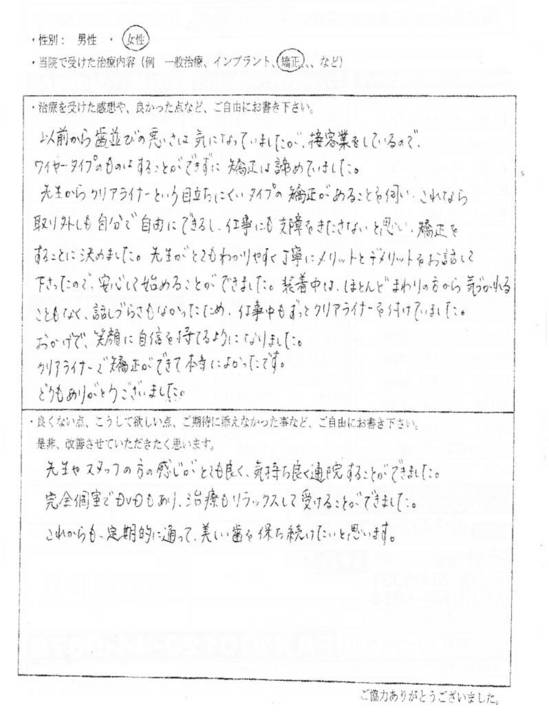 ・性別： 男性 ・ 女性
・当院で受けた治療内容（例 一般治療、インプラント、矯正、、など）
・治療を受けた感想や、良かった点など、ご自由にお書き下さい。
以前から歯並びの悪いさは気になっていましたが、接客業をしているので、
ワイヤータイプのものはすることができずに矯正は諦めていました。
先生からクリアライナーという目立ちにくいタイプの矯正があることを伺い、これなら
取り外しも自分で自由にできるし、仕事にも支障をきたさないと思い、矯正を
することに決めました。先生がとてもわかりやすく丁寧にメリットとデメリットをお話して
下さったので、安心して始めることができました。装着中は、ほとんどまわりの方から気づかれる
こともなく、話しづらさもなかったため、仕事中もずっとクリアライナーを付けていました。
おかげで、笑顔に自信を持てるようになりました。
クリアライナーで矯正ができて本当によかったです。
どうもありがとうございました。
・良くない点、こうして欲しい点、ご期待に添えなかった事など、ご自由にお書き下さい。
是非、改善させていただきたく思います。
先生やスタッフの方の感じがとても良く、気持ち良く通院することができました。
完全個室でDVDもあり、治療もリラックスして受けることができました。
これからも、定期的に通って、美しい歯を保ち続けたいと思います。
ご協力ありがとうございました。